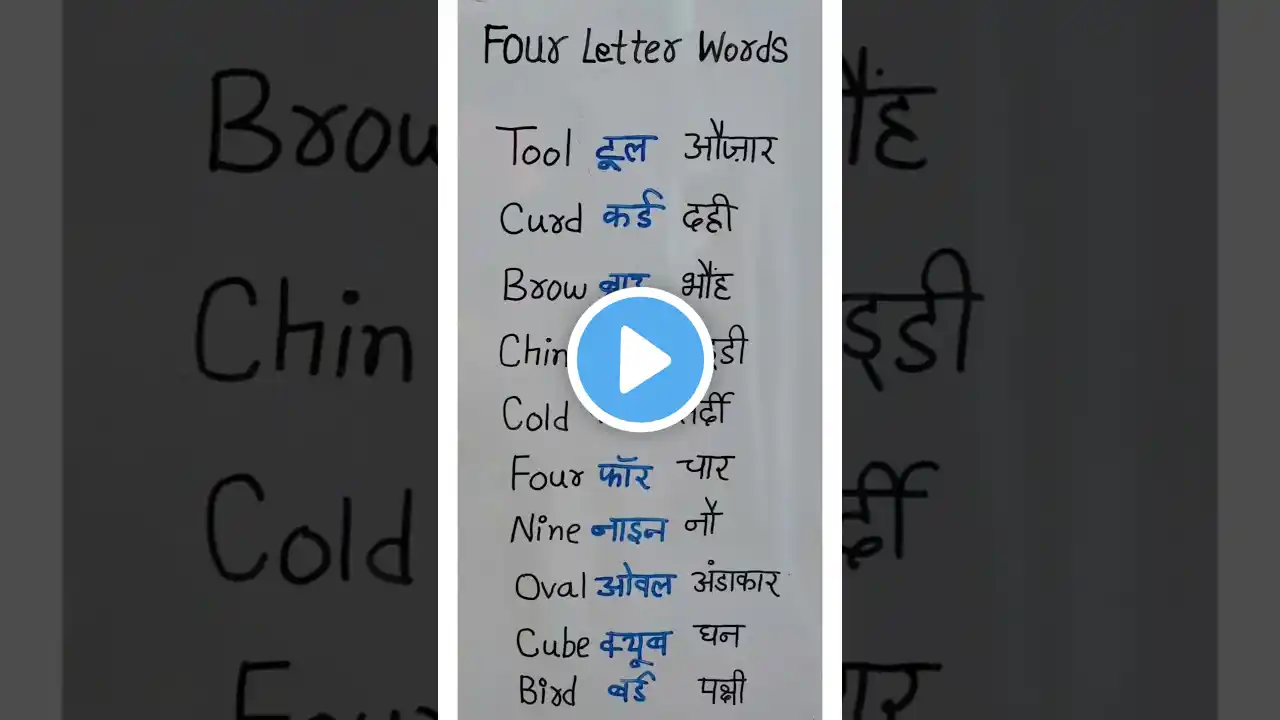 Four Letter Words
Tool टूल औज़ार
Curd कर्ड दही
Brow भौंह
Chin
Cold
Four फॉर चार
Nine नाइन नौ
Oval ओवल अंडाकार
Cube क्यूब घन
Bird बर्ड पक्षी